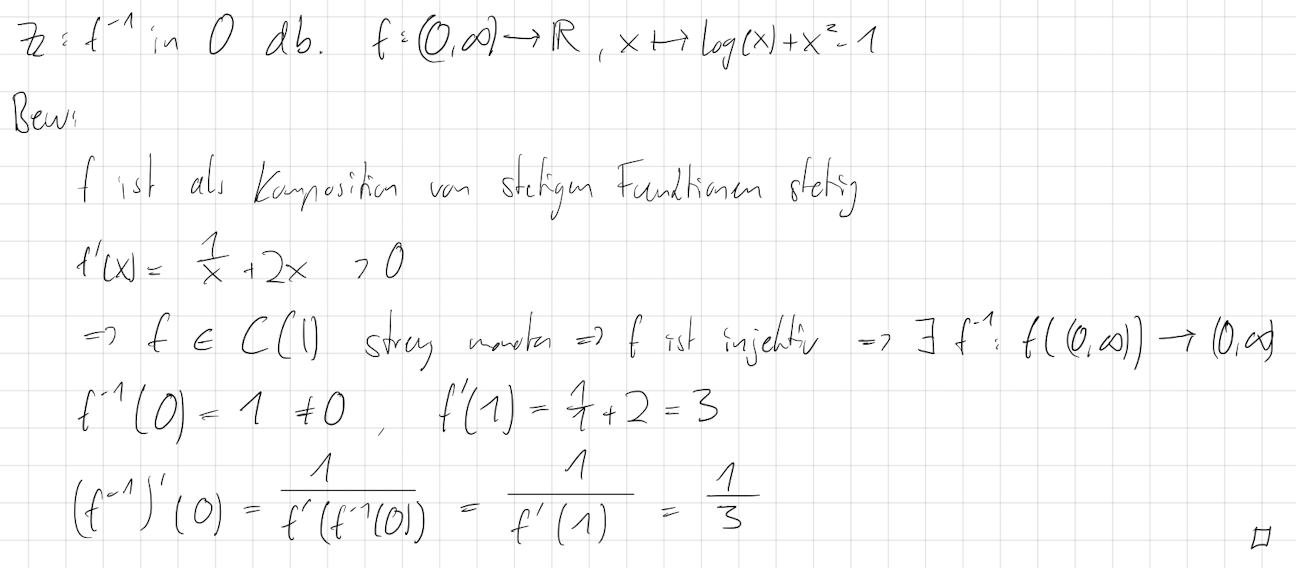 Zz: f⁻¹ in 0 db. f: (0,∞) → ℝ, x ↦ log(x) + x² - 1
Bew:
f ist als Komposition von stetigen Funktionen stetig
f'(x) = 1/x + 2x > 0
=> f ∈ C(I) streng monoton => f ist injektiv => ∃ f⁻¹: f((0,∞)) → (0,∞)
f⁻¹(0) = 1 ≠ 0, f'(1) = 1/1 + 2 = 3
(f⁻¹)'(0) = 1/(f'(f⁻¹(0))) = 1/(f'(1)) = 1/3
□